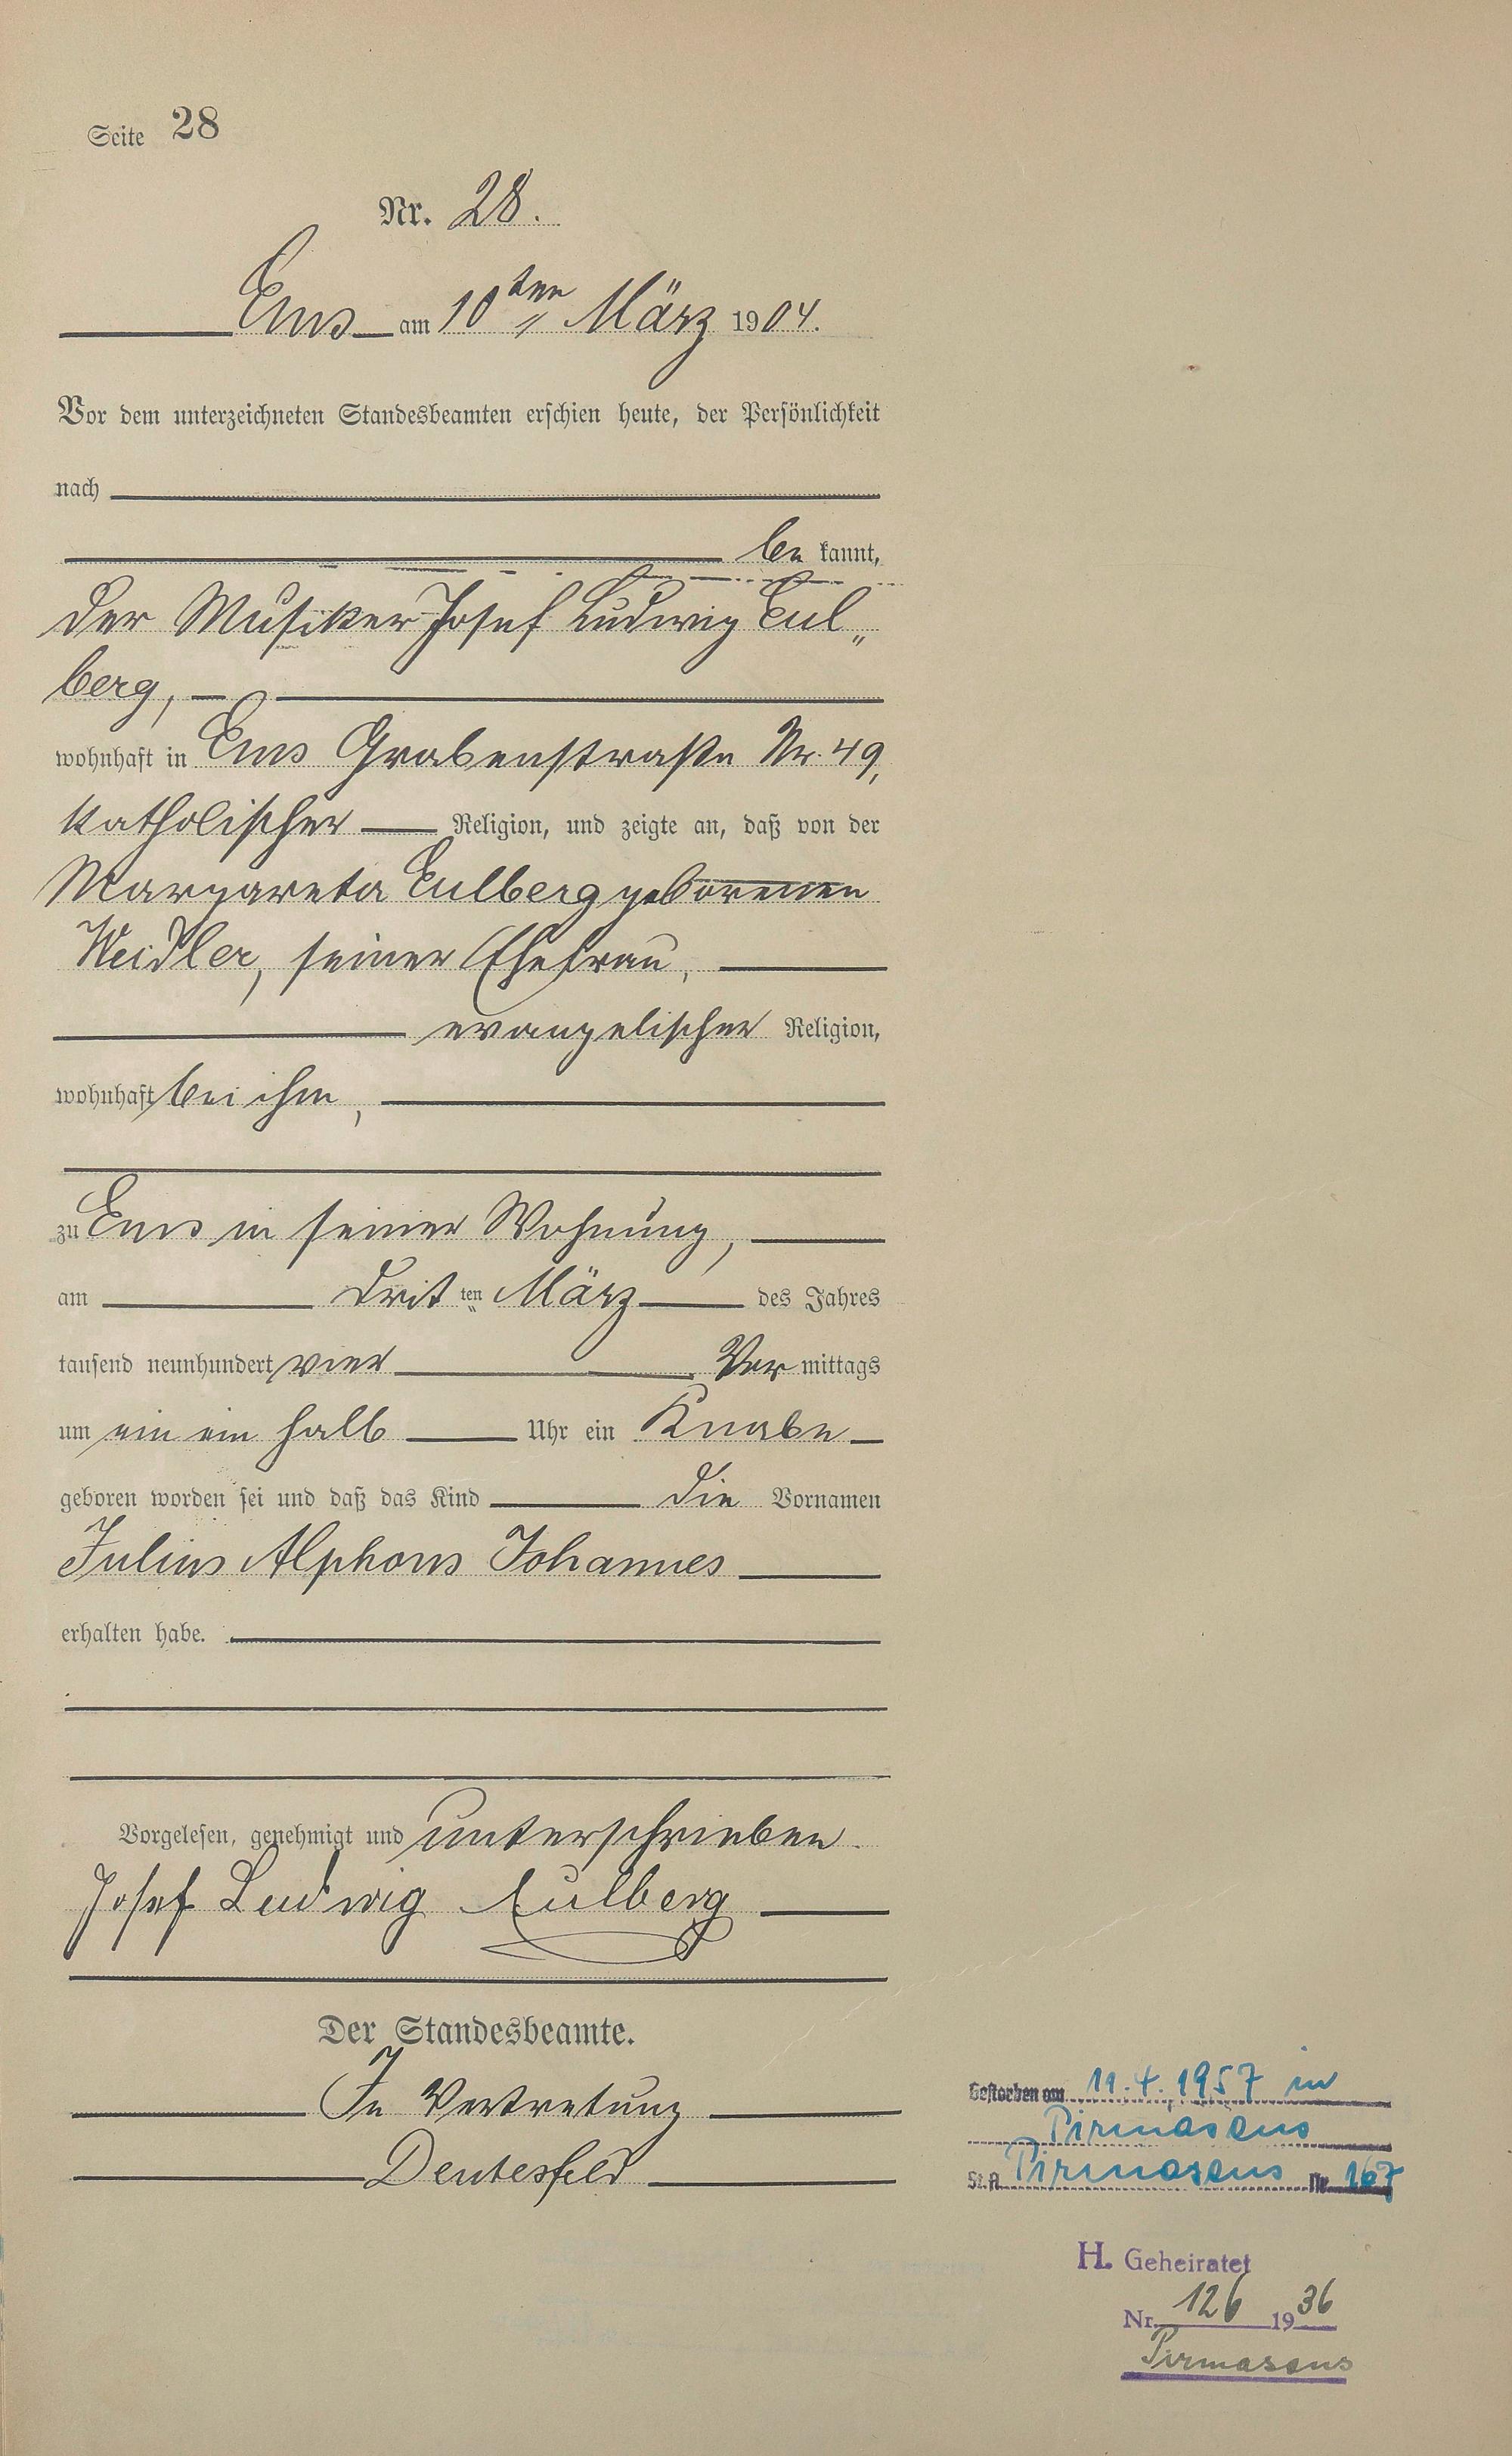 Seite 28
Nr. 28.
Ems am 10ten März 1904.
Vor dem unterzeichneten Standesbeamten erschien heute, der Persönlichkeit
nach
be kannt,
der Musiker Josef Ludwig Eul„
berg,
wohnhaft in Ems Grabenstraße Nr. 49,
katholischer Religion, und zeigte an, daß von der
Margareta Eulberg geborenen
Weidler, seiner Ehefrau,
evangelischer Religion,
wohnhaft bei ihm,
zu Ems in seiner Wohnung,
am dritten März des Jahres
tausend neunhundert vier Vormittags
um ein ein halb Uhr ein Knabe
geboren worden sei und daß das Kind die Vornamen
Julius Alphons Johannes
erhalten habe.
Vorgelesen, genehmigt und unterschrieben.
Josef Ludwig Eulberg
Der Standesbeamte.
In Vertretung
Deutesfeld
Gestorben am 11.4.1957 in
Pirmasens
St.A. Pirmasens Nr. 167
H. Geheiratet
Nr. 126 1936
Pirmasens